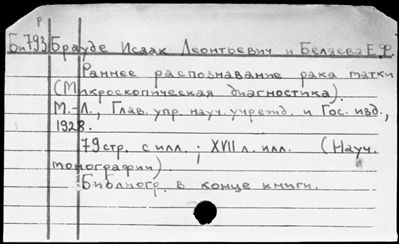 Р
Би793 Брауде Исаак Леонтьевич и Беляева Е.Ф.
Раннее распознавание рака матки
(Микроскопическая диагностика).
М.-Л., Глав. упр. науч. учрежд. и Гос. изд.,
1928.
79 стр. с илл. ; XVII л. илл. (Науч.
монографии).
Библиогр. в конце книги.